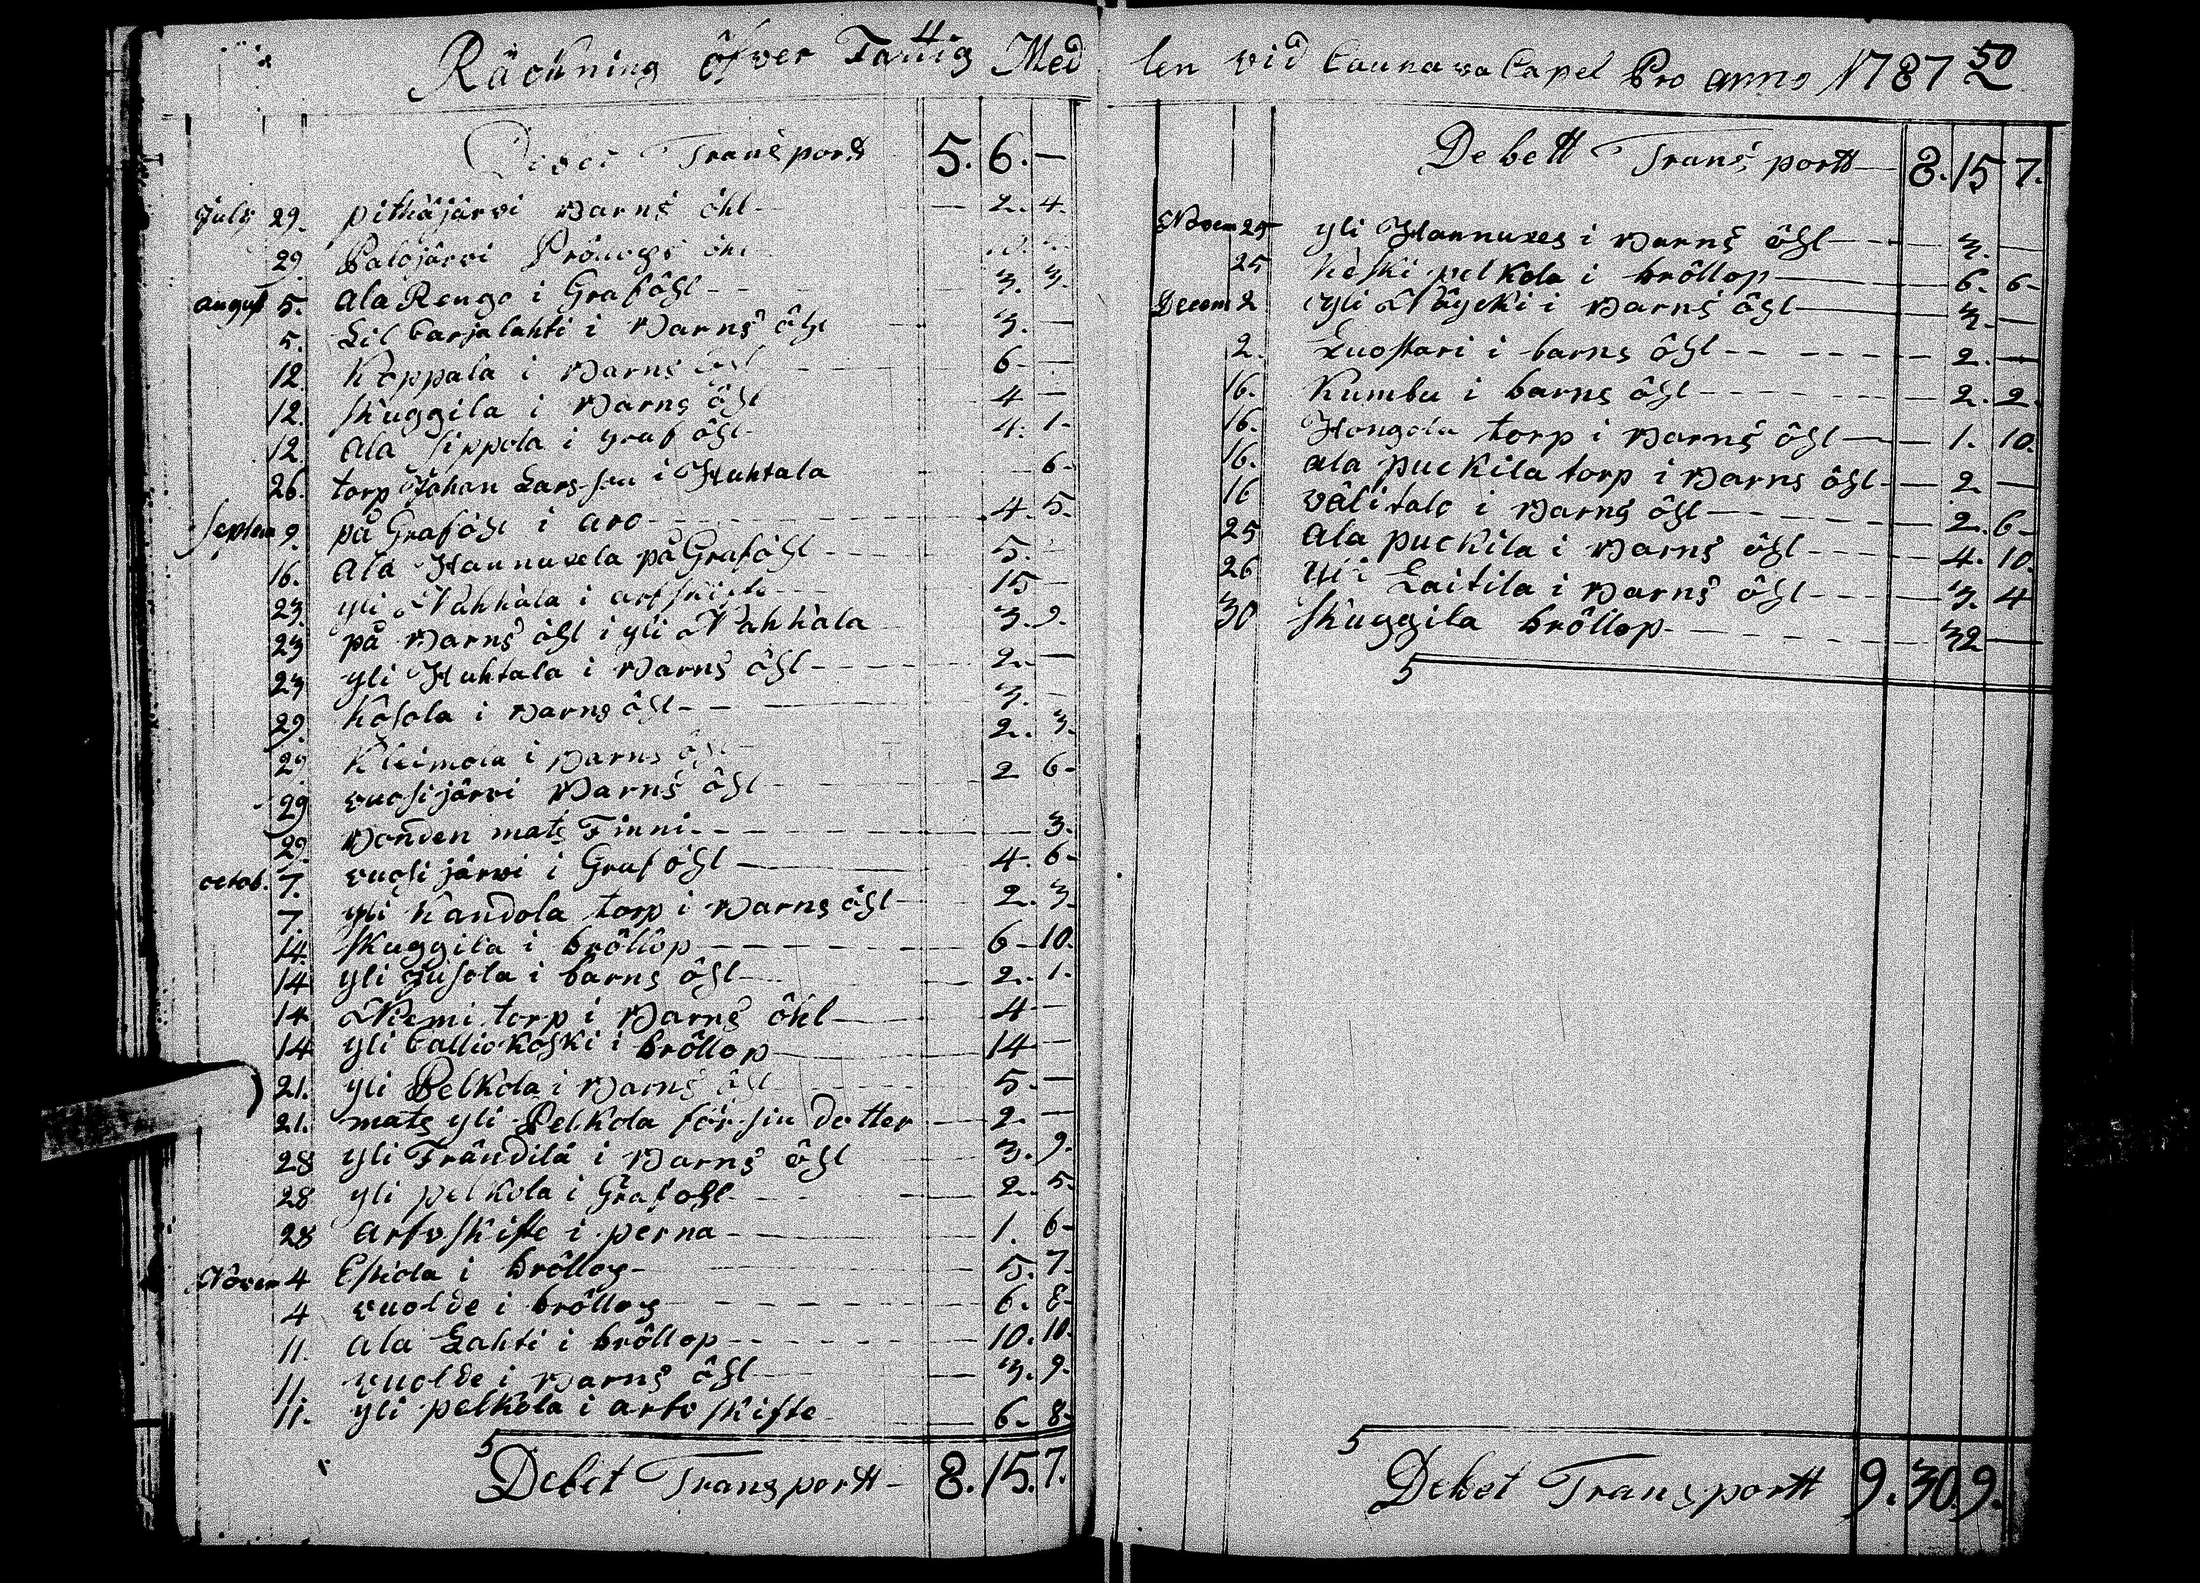 Räckning öfver Fattig Med
Debet Transportt 5. 6. —
July 29. pitkäjärvi Barns öhl — 2. 4.
29. Palojärvi öhl
august 5. Ala Rengo i Graföhl — 3. 3.
5. Lil Carjalahti i Barns öhl — 3. —
12 Koppala i Barns öhl 6 —
12. Skuggila i Barns öhl 4 —
12. Ala Sippola i graf öhl 4. 1.
26. torp Johan Larsson i Huhtala 6
Septem 9. på Graföhl i aro 4. 5.
16. Ala Hannuxela på Graföhl 5.
23. yli Näkkälä i arfskifte 15 —
23 på Barns öhl i yli Näkkälä 3. 9.
23 yli Huhtala i Barns öhl 2. —
29. Kosola i Barns öhl 3. —
29 Kleimola i Barns öhl 2. 3.
29 vuosijärvi Barns öhl 2 6
29. Bonden mats Finni 3.
octob. 7. vuosijärvi i Graföhl 4. 6
7. yli Kandola torp i Barns öhl 2. 3
14. Skuggila i bröllop 6 10.
14 yli jusola i barns öhl 2. 1.
14 Niemi torp i Barns öhl 4 —
14 yli Calliokoski i bröllop 14 —
21. yli Pelkola i Barns öhl 5. —
21. mats yli Pelkola för sin dotter 2. —
28 yli Frändilä i Barns öhl 3. 9.
28 yli pelkola i Graföhl 2. 5.
28 arfvskifte i perna 1. 6
Novem 4 Eskola i bröllop 5. 7.
4 vuolde i bröllop 6. 8
11. ala Lahti i bröllop 10. 10.
11. vuolde i Barns öhl 3. 9.
11. yli pelkola i arfvskifte 6. 8
Debet Transportt 8. 15. 7.
len vid Caunava Capel Pro anno 1787 50
Debett Transportt 8. 15 7.
Novem 25 yli Hannuxes i Barns öhl 3. —
25 Keski pelkola i bröllop 6. 6
Decem 2 yli Näycki i Barns öhl 3. —
2. Luostari i barns öhl 2. —
16. Kumbu i barns öhl 2. 2.
16. Hongola torp i Barns öhl 1. 10.
16. ala puckila torp i Barns öhl 2 —
16 välitalo i Barns öhl 2. 6
25 Ala puckila i Barns öhl 4. 10.
26 yli Laitila i Barns öhl 3. 4
30 Skuggila bröllop 32 —
Debet Transportt 9. 30. 9.